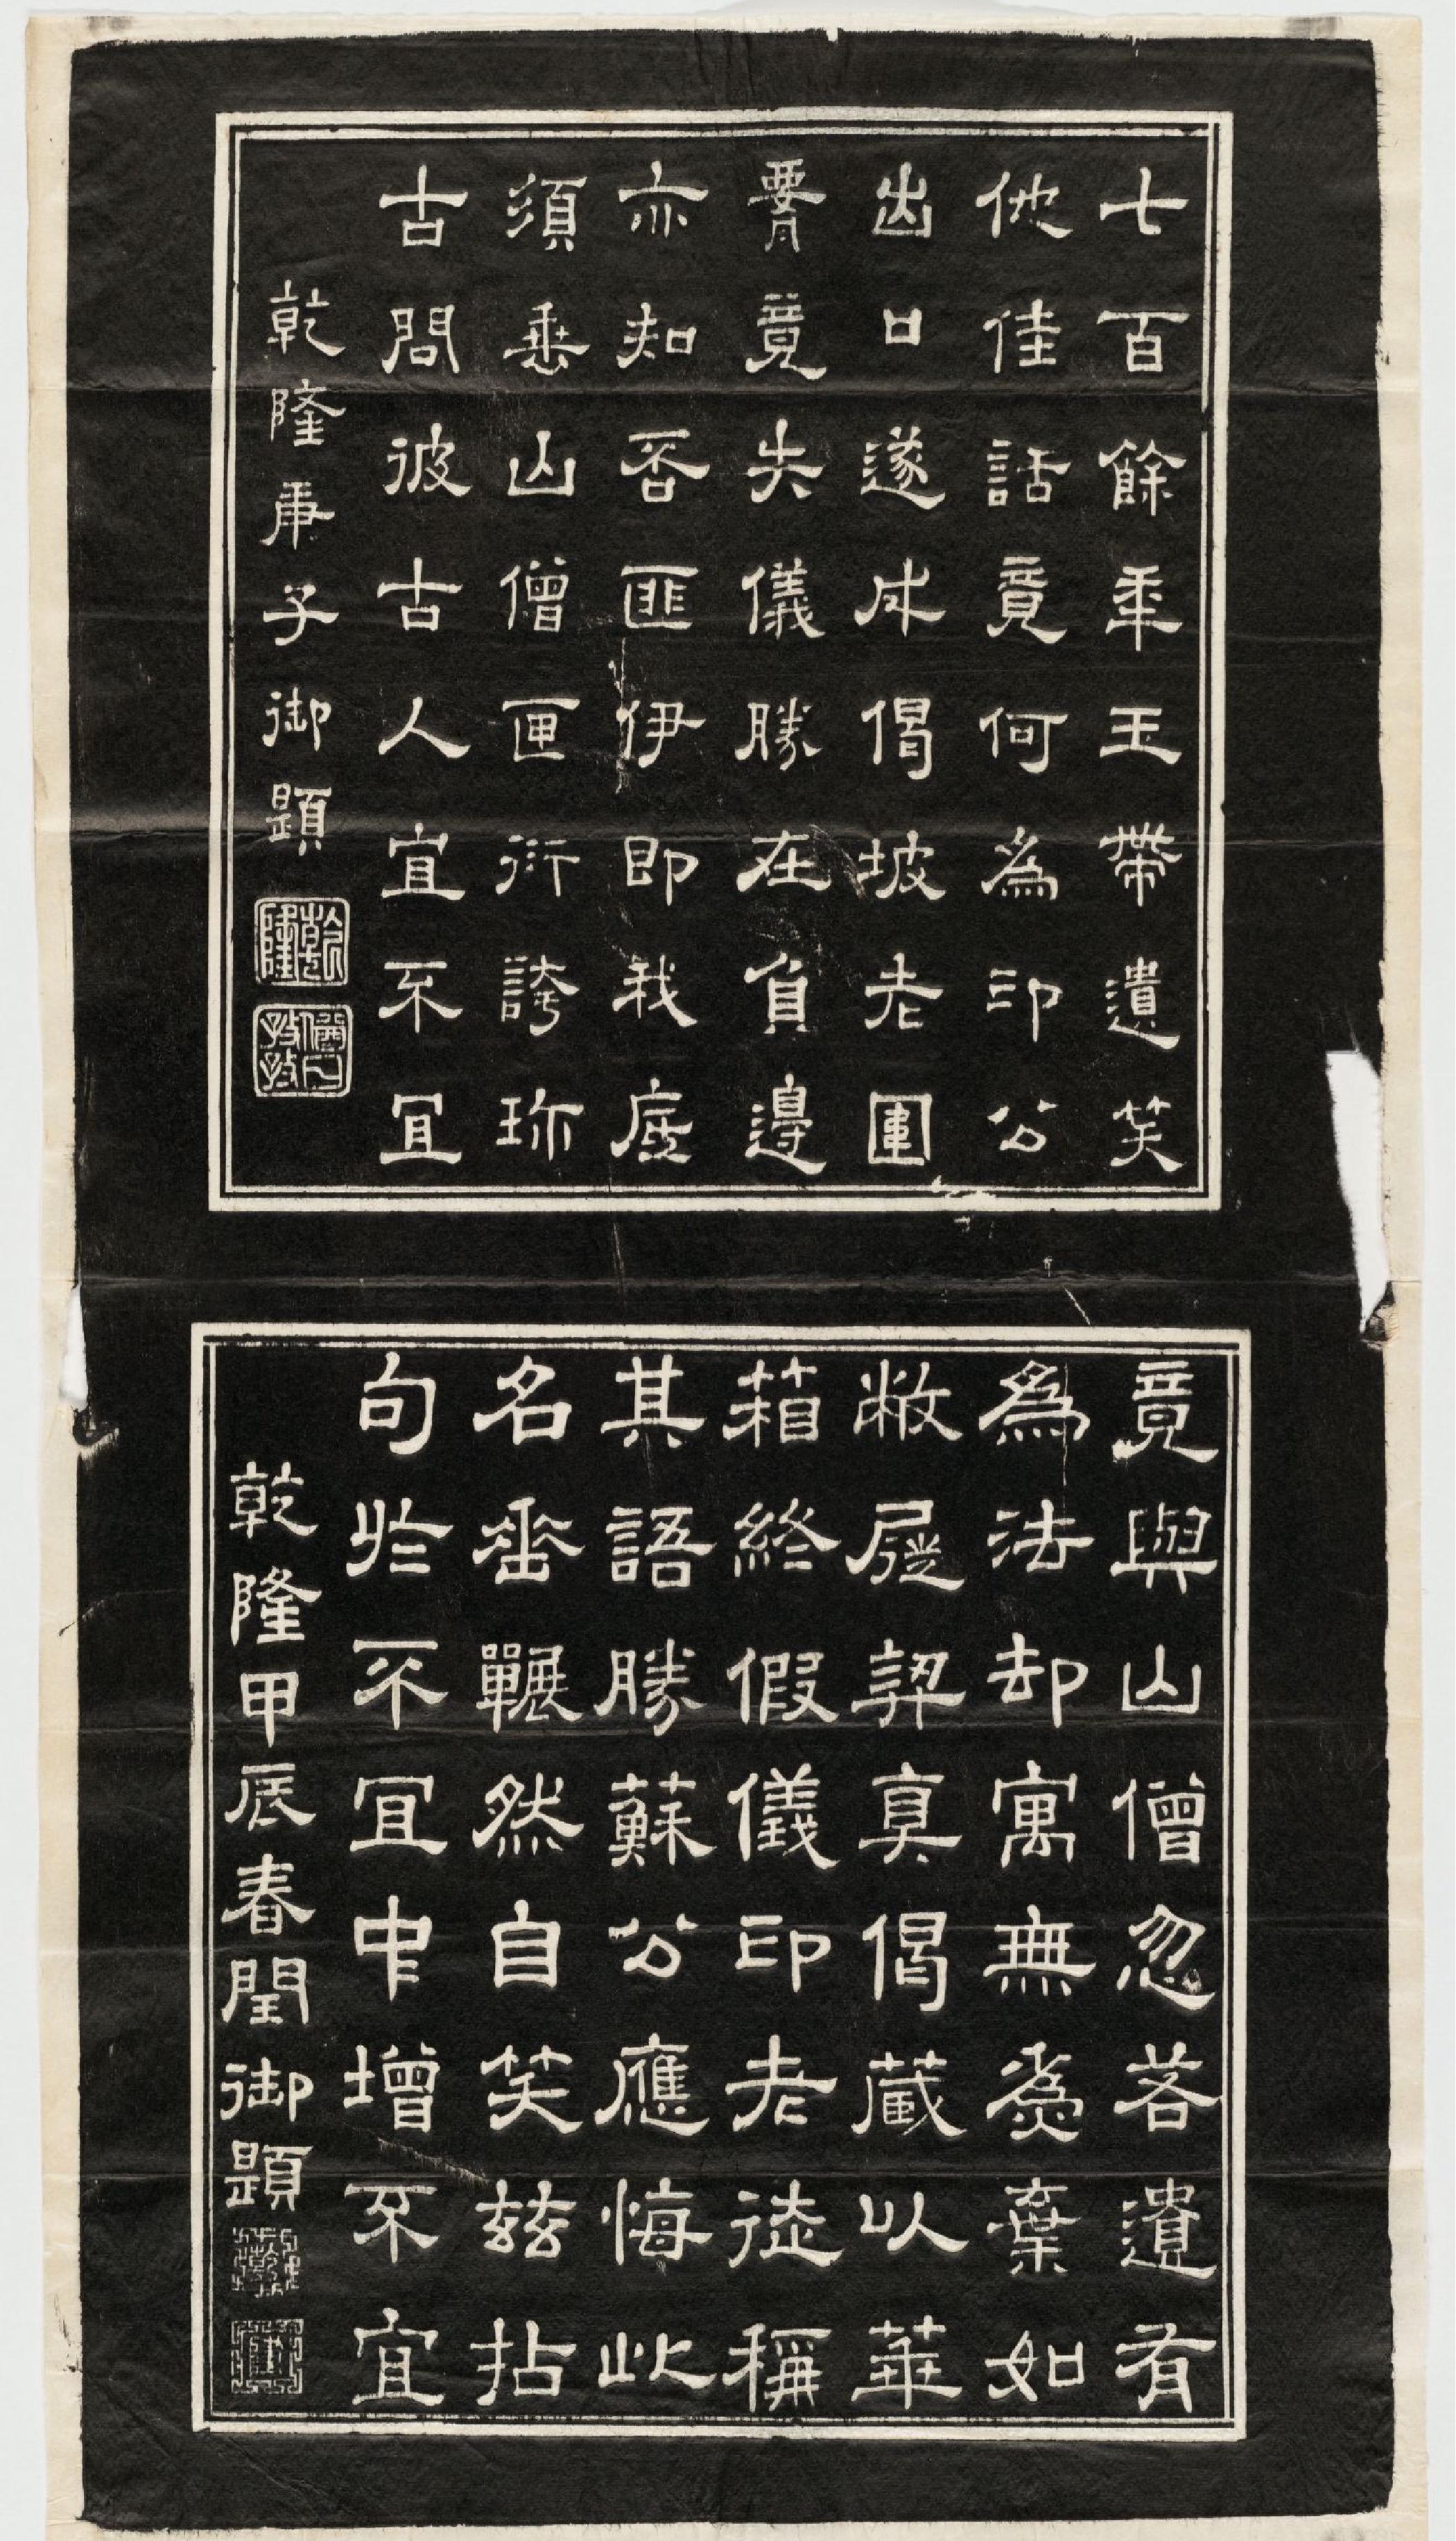 七百餘年玉帶遺笑
他佳話竟何為印公
出口遂成偈坡老圍
腰竟失儀勝在負邊
亦知否匪伊即我底
須山僧匣衍誇珎
古問彼古人宜不宜
乾隆庚子御題
乾隆
猶日孜孜
竟與山僧忽落遺有
為法却寓無為棄如
敝屣契真偈藏以華
箱終假儀印老徒稱
其語勝蘇公應悔此
名垂囅然自笑兹拈
句於不宜中增不宜
乾隆甲辰春閏御題